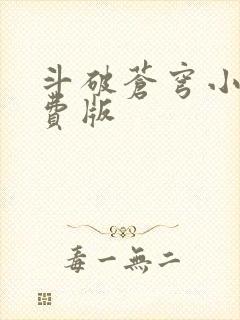 斗破蒼穹小
費版
毒一無二